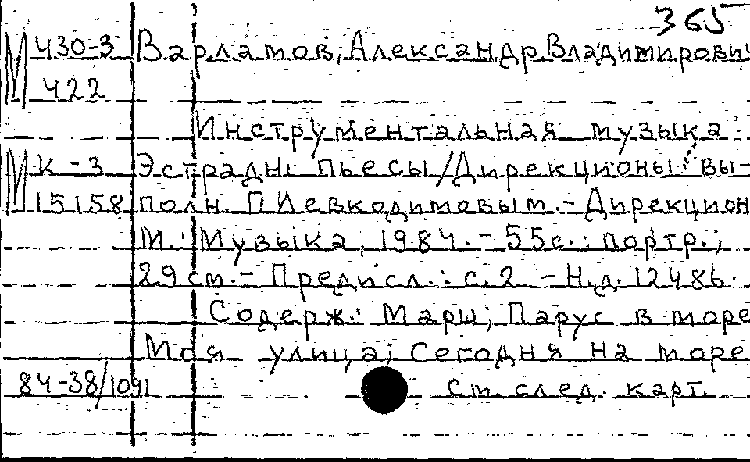 365
М Ч30-3 Варламов, Александр Владимирович
Ч22
Инструментальная музыка
М К-3 Эстрадн. пьесы/Дирекционы вы-
15158 полн. П Левкодимовым.-Дирекцион
М.: Музыка, 1984.-55с.: портр.;
29см.-Предисл.: с.2 -Н.д. 12486.
Содерж.: Марш; Парус в море
Моя улица; Сегодня на море
84-38/1091 См. след. карт.